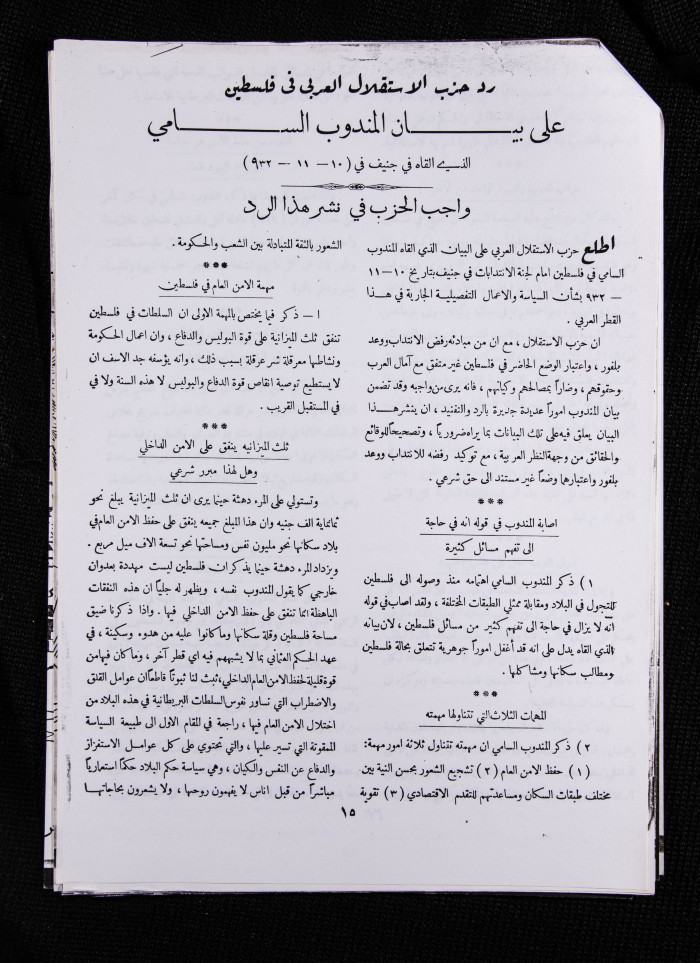 رد حزب الاستقلال العربي في فلسطين
على بيان المندوب السامي
الذي القاه في جنيف في (١٠ — ١١ — ٩٣٢)
واجب الحزب في نشر هذا الرد
اطلع حزب الاستقلال العربي على البيان الذي القاه المندوب
السامي في فلسطين امام لجنة الانتدابات في جنيف بتاريخ ١٠—١١
— ٩٣٢ بشأن السياسة والاعمال التفصيلية الجارية في هذا
القطر العربي .
ان حزب الاستقلال ، مع ان من مبادئه رفض الانتداب ووعد
بلفور ، واعتبار الوضع الحاضر في فلسطين غير متفق مع آمال العرب
وحقوقهم ، وضاراً بمصالحهم وكيانهم ، فانه يرى من واجبه وقد تضمن
بيان المندوب اموراً عديدة جديرة بالرد والتفنيد ، ان ينشر هذا
البيان يعلق فيه على تلك البيانات بما يراه ضرورياً ، وتصحيحاً للوقائع
والحقائق من وجهة النظر العربية ، مع توكيد رفضه للانتداب ووعد
بلفور واعتبارهما وضعاً غير مستند الى حق شرعي .
***
اصابة المندوب في قوله انه في حاجة
الى تفهم مسائل كثيرة
١) ذكر المندوب السامي اهتمامه منذ وصوله الى فلسطين
للتجول في البلاد ومقابلة ممثلي الطبقات المختلفة ، ولقد اصاب في قوله
انه لا يزال في حاجة الى تفهم كثير من مسائل فلسطين ، لان بيانه
الذي القاه يدل على انه قد أغفل اموراً جوهرية تتعلق بحالة فلسطين
ومطالب سكانها ومشاكلها .
***
المهات الثلاث التي تتناولها مهمته
٢) ذكر المندوب السامي ان مهمته تتناول ثلاثة امور مهمة:
(١) حفظ الامن العام (٢) تشجيع الشعور بحسن النية بين
مختلف طبقات السكان ومساعدتهم للتقدم الاقتصادي (٣) تقوية
الشعور بالثقة المتبادلة بين الشعب والحكومة .
***
مهمة الامن العام في فلسطين
ا — ذكر فيما يختص بالمهمة الاولى ان السلطات في فلسطين
تنفق ثلث الميزانية على قوة البوليس والدفاع ، وان اعمال الحكومة
ونشاطها معرقلة شر عرقلة بسبب ذلك ، وانه يؤسفه جد الاسف ان
لا يستطيع توصية انقاص قوة الدفاع والبوليس لا هذه السنة ولا في
في المستقبل القريب .
***
ثلث الميزانيه ينفق على الامن الداخلي
وهل لهذا مبرر شرعي
وتستولي على المرء دهشة حينما يرى ان ثلث الميزانية يبلغ نحو
ثمانماية الف جنيه وان هذا المبلغ جميعه ينفق على حفظ الامن العام في
بلاد سكانها نحو مليون نفس ومساحتها نحو تسعة الاف ميل مربع .
ويزداد المرء دهشة حينما يذكر ان فلسطين ليست مهددة بعدوان
خارجي كما يقول المندوب نفسه ، ويظهر له جلياً ان هذه النفقات
الباهظة انما تنفق على حفظ الامن الداخلي فيها . واذا ذكرنا ضيق
مساحة فلسطين وقلة سكانها وما كانوا عليه من هدوء وسكينة ، في
عهد الحكم العثماني بما لا يشبههم فيه اي قطر آخر ، وما كان فيها من
قوة قليلة لحفظ الامن العام الداخلي ، ثبت لنا ثبوتاً قاطعاً ان عوامل القلق
والاضطراب التي تساور نفوس السلطات البريطانية في هذه البلاد من
اختلال الامن العام فيها ، راجعة في المقام الاول الى طبيعة السياسة
الممقوتة التي تسير عليها ، والتي تحتوي على كل عوامل الاستفزاز
والدفاع عن النفس والكيان ، وهي سياسة حكم البلاد حكماً استعمارياً
مباشراً من قبل اناس لا يفهمون روحها ، ولا يشعرون بحاجاتها
١٥